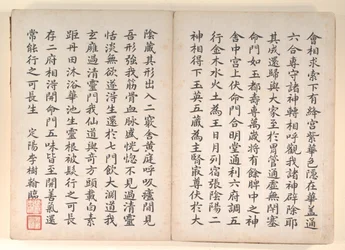 會相求索下有絳宮紫華色隱在華蓋通
六合專守諸神轉相呼觀我諸神辟除耶
其成還歸與大家至於胃管通虛無閉塞
命門如玉都壽專萬歲將有餘脾中之神
舍中宮上伏命門合明堂通利六府調五
行金木水火土為王日月列宿張陰陽二
神相得下玉英五藏為主腎最尊伏於大
陰藏其形出入二竅舍黃庭呼吸廬間見
吾形強我筋骨血脉盛恍惚不見過清靈
恬淡無欲遂得生還於七門飲大淵道我
玄廱過清靈門我仙道與奇方頭載白素
距丹田沐浴華池生靈根被髮行之可長
存二府相得開命門五味皆至開善氣還
常能行之可長生 定陽李樹翰臨